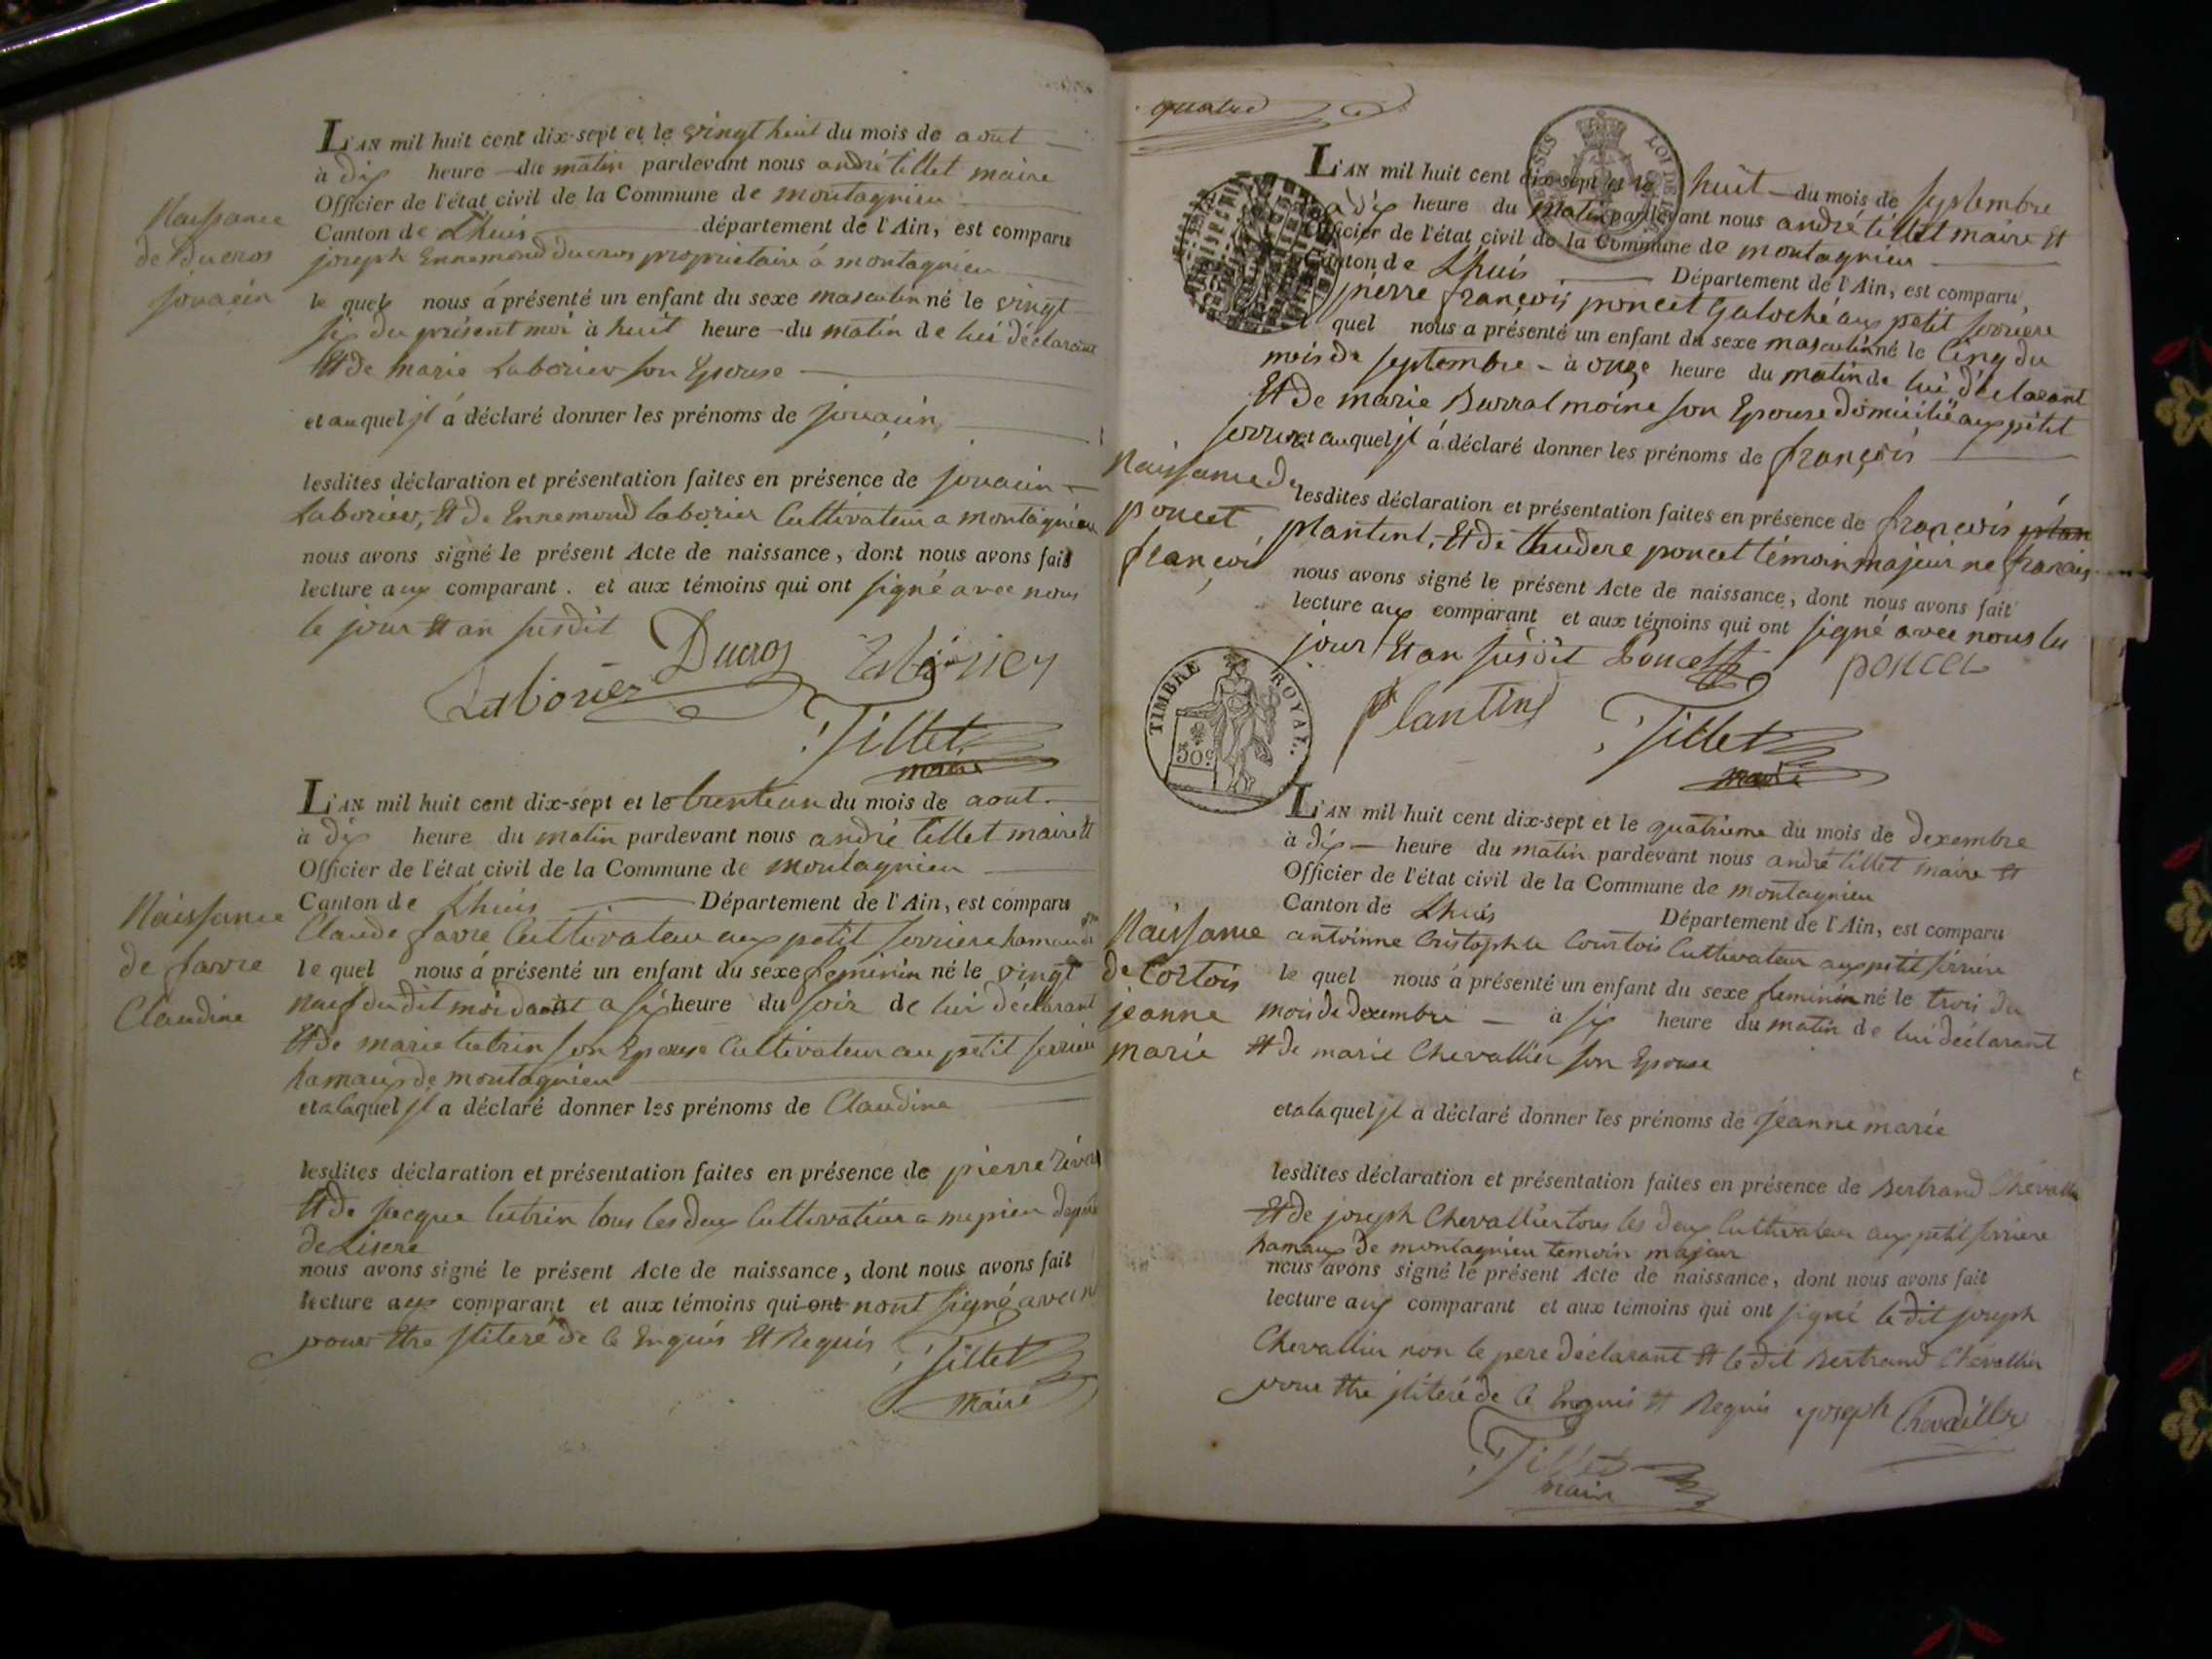 Naissance
de Ducros
jouacin
L'AN mil huit cent dix-sept et le vingt huit du mois de aout
à dix heure du matin pardevant nous andré tillet maire
Officier de l'état civil de la Commune de montagnieu
Canton de Lhuis département de l'Ain, est comparu
joseph Ennemond ducros propriétaire à montagnieu
le quel nous à présenté un enfant du sexe masculin né le vingt
six du présent moi à huit heure du matin de lui déclarant
Et de marie Laborier son Epouse
et au quel jl á déclaré donner les prénoms de jouacin
lesdites déclaration et présentation faites en présence de jouacin
Laborier, Et de Ennemond laborier Cultivateur a montagnieu
nous avons signé le présent Acte de naissance, dont nous avons fait
lecture aux comparant . et aux témoins qui ont signé avec nous
le jour Et an susdit
Ducros
Laborier
Laborier
Tillet
maire
Naissance
de favre
Claudine
L'AN mil huit cent dix-sept et le trente un du mois de aout
à dix heure du matin pardevant nous andré tillet maire Et
Officier de l'état civil de la Commune de montagnieu
Canton de Lhuis Département de l'Ain, est comparu
Claude favre Cultivateur aux petit serriere hamau de
le quel nous á présenté un enfant du sexe feminin né le vingt
neuf du dit moi daout a six heure du soir de lui declarant
Et de marie lutrin son Epouse Cultivateur au petit serriere
hamaux de montagnieu
et a la quel jl a déclaré donner les prénoms de Claudine
lesdites déclaration et présentation faites en présence de pierre
Et de jacque lutrin tous les deux Cultivateur a mepieu
de Lisere
nous avons signé le présent Acte de naissance, dont nous avons fait
lecture aux comparant et aux témoins qui ont nont signé avec
pour Etre jliteré de ce Enquis Et Requis
Tillet
Maire
quatre
LOI DE
L'AN mil huit cent dix-sept et le huit du mois de septembre
à dix heure du matin pardevant nous andré tillet maire Et
Officier de l'état civil de la Commune de montagnieu
Canton de Lhuis Département de l'Ain, est comparu
pierre françois poncet Galoché aux petit serriere
quel nous a présenté un enfant du sexe masculin né le Cinq du
mois de septembre - à onze heure du matin de lui déclarant
Et de marie Burral moine son Epouse domicilié aux petit
serriere et au quel jl á déclaré donner les prénoms de françois
Naissance de
poncet
françois
lesdites déclaration et présentation faites en présence de françois plan
plantint, Et de poncet témoin majeur
nous avons signé le présent Acte de naissance, dont nous avons fait
lecture aux comparant et aux témoins qui ont signé avec nous les
jour Et an susdit
Poncet
poncet
plantin
Tillet
maire
TIMBRE ROYAL.
50c.
L'AN mil huit cent dix-sept et le quatrieme du mois de dexembre
à dix heure du matin pardevant nous andré tillet maire Et
Officier de l'état civil de la Commune de montagnieu
Canton de Lhuis Département de l'Ain, est comparu
antoinne Cristophle Courtois Cultivateur aux petit serriere
Naissance
de Cortois
jeanne
marie
le quel nous á présenté un enfant du sexe feminin né le trois du
mois de dexembre - à six heure du matin de lui déclarant
Et de marie Chevallier son Epouse
et a la quel jl a déclaré donner les prénoms de jeanne marie
lesdites déclaration et présentation faites en présence de Bertrand Chevallier
Et de joseph Chevallier tous les deux Cultivateur aux petit serriere
hamaux de montagnieu temoin majeur
nous avons signé le présent Acte de naissance, dont nous avons fait
lecture aux comparant et aux témoins qui ont signé le dit joseph
Chevallier non le pere déclarant Et le dit Bertrand Chevallier
pour Etre jliteré de ce Enquis Et Requis
joseph Chevallier
Tillet
maire